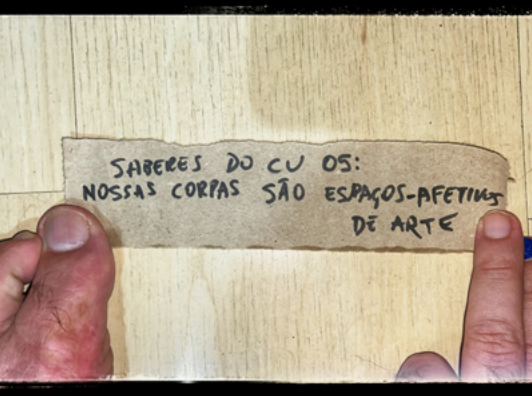 SABERES DO CU 05:
NOSSAS CORPAS SÃO ESPAÇOS-AFETIVOS
DE ARTE